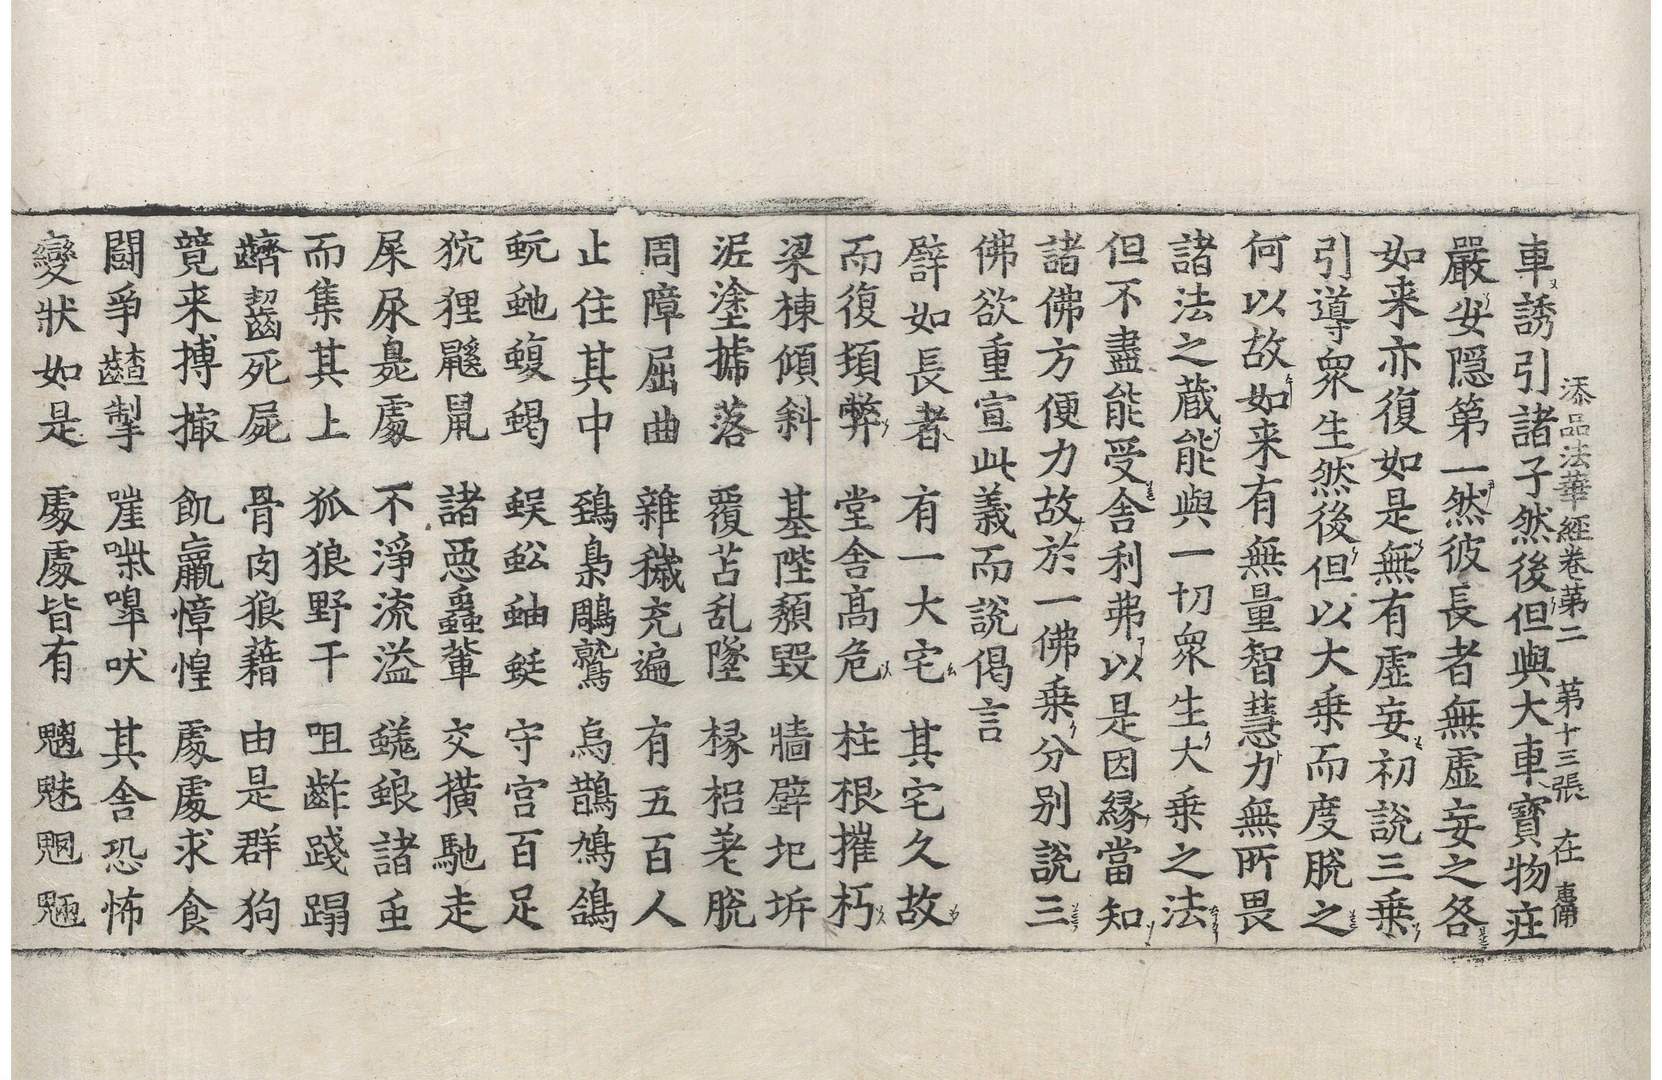 添品法華經卷第二　第十三張　在　

車誘引諸子然後但與大車寶物莊
嚴安隱第一然彼長者無虛妄之咎
如来亦復如是無有虛妄初說三乗
引導衆生然後但以大乗而度脫之
何以故如来有無量智慧力無所畏
諸法之藏能與一切衆生大乗之法
但不盡能受舍利弗以是因縁當知
諸佛方便力故於一佛乗分別說三
佛欲重宣此義而說偈言
譬如長者　有一大宅　其宅久故
而復頓弊　堂舎髙危　柱根摧朽
梁棟傾斜　基陛頹毀　牆壁圯坼
泥塗𢮎落　覆苫乱墜　椽梠差脫
周障屈曲　雜穢充遍　有五百人
止住其中　鵄梟鵰鷲　烏鵲鳩鴿
蚖虵蝮蝎　蜈蚣蚰蜒　守宮百足
狖狸鼷鼠　諸惡蟲輩　交横馳走
屎尿臭處　不淨流溢　蜣蜋諸虫
而集其上　狐狼野干　咀齚踐蹋
齩齧死屍　骨肉狼藉　由是群狗
競来搏撮　飢羸慞惶　處處求食
闘爭齟掣　嘊喍嘷吠　其舎恐怖
變狀如是　處處皆有　魑魅魍魎